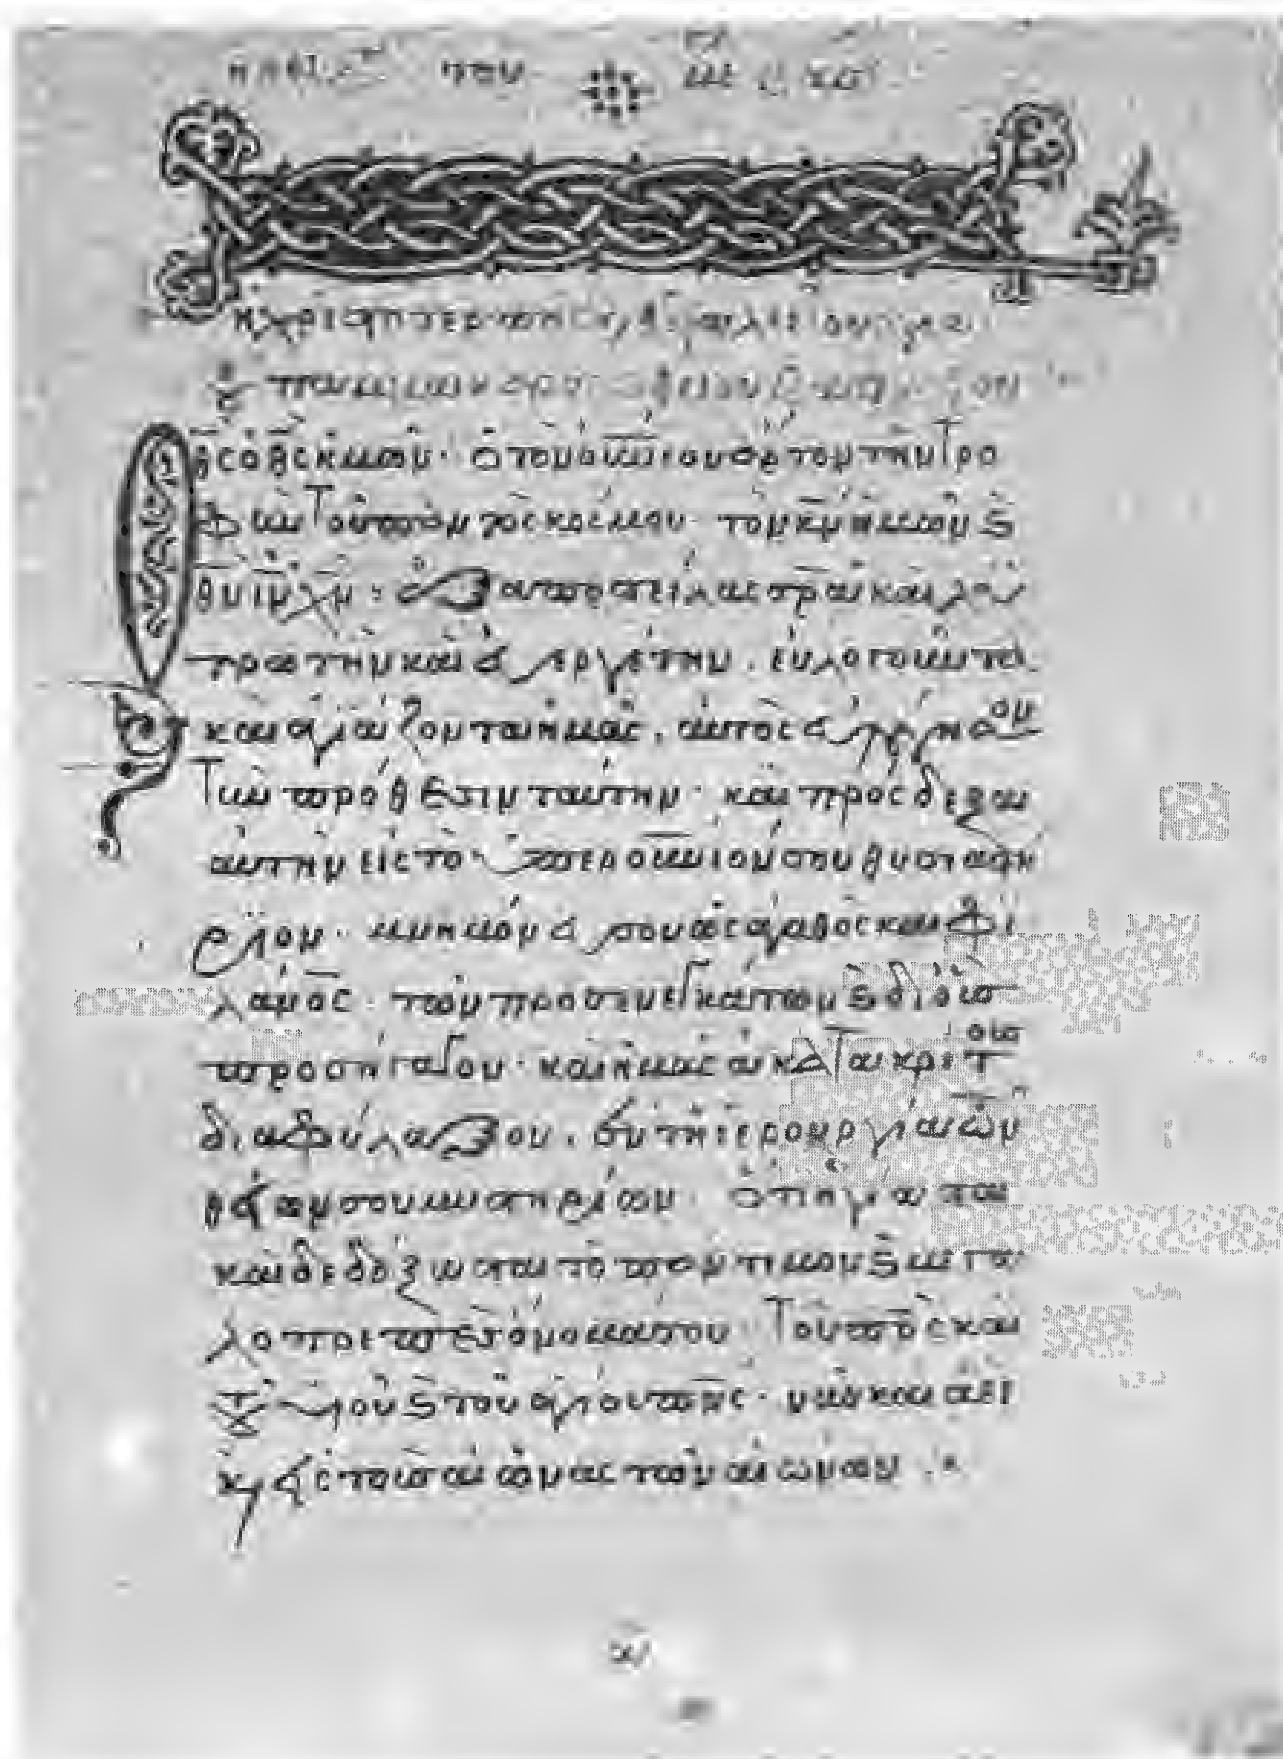 θσ ὁ θσ ἡμῶν · ὁ τὸν οὐνιον ἄρτον τὴν τρο
φὴν τοῦ παντὸς κόσμου · τὸν κν ἡμῶν ϛ
θν ιν χν · ἐξαποστείλας σρα καὶ λυ
τρωτὴν καὶ εὐεργέτην · εὐλογοῦντα
καὶ ἁγιάζοντα ἡμᾶς · αὐτὸς εὐλόγησον
τὴν πρόθεσιν ταύτην · καὶ πρόσδεξαι
αὐτὴν εἰς τὸ ὑπερουνιόν σου θυσιαστή
ριον · μνημόνευσον ὡς ἀγαθὸς καὶ φι
λανος · τῶν προσενεγκάντων ϛ δι' οὓς
προσήγαγον · καὶ ἡμᾶς ἀκατακρίτους
διαφύλαξον · ἐν τῇ ἱερουργίᾳ τῶν
θείων σου μυστηρίων · ὅτι ἡγίασται
καὶ δεδόξασται τὸ πάντιμον ϛ μεγα
λοπρεπὲς ὄνομά σου · τοῦ πρς καὶ
τοῦ υἱοῦ ϛ τοῦ ἁγίου πνς · νῦν καὶ ἀεὶ
καὶ εἰς τοὺς αἰῶνας τῶν αἰώνων